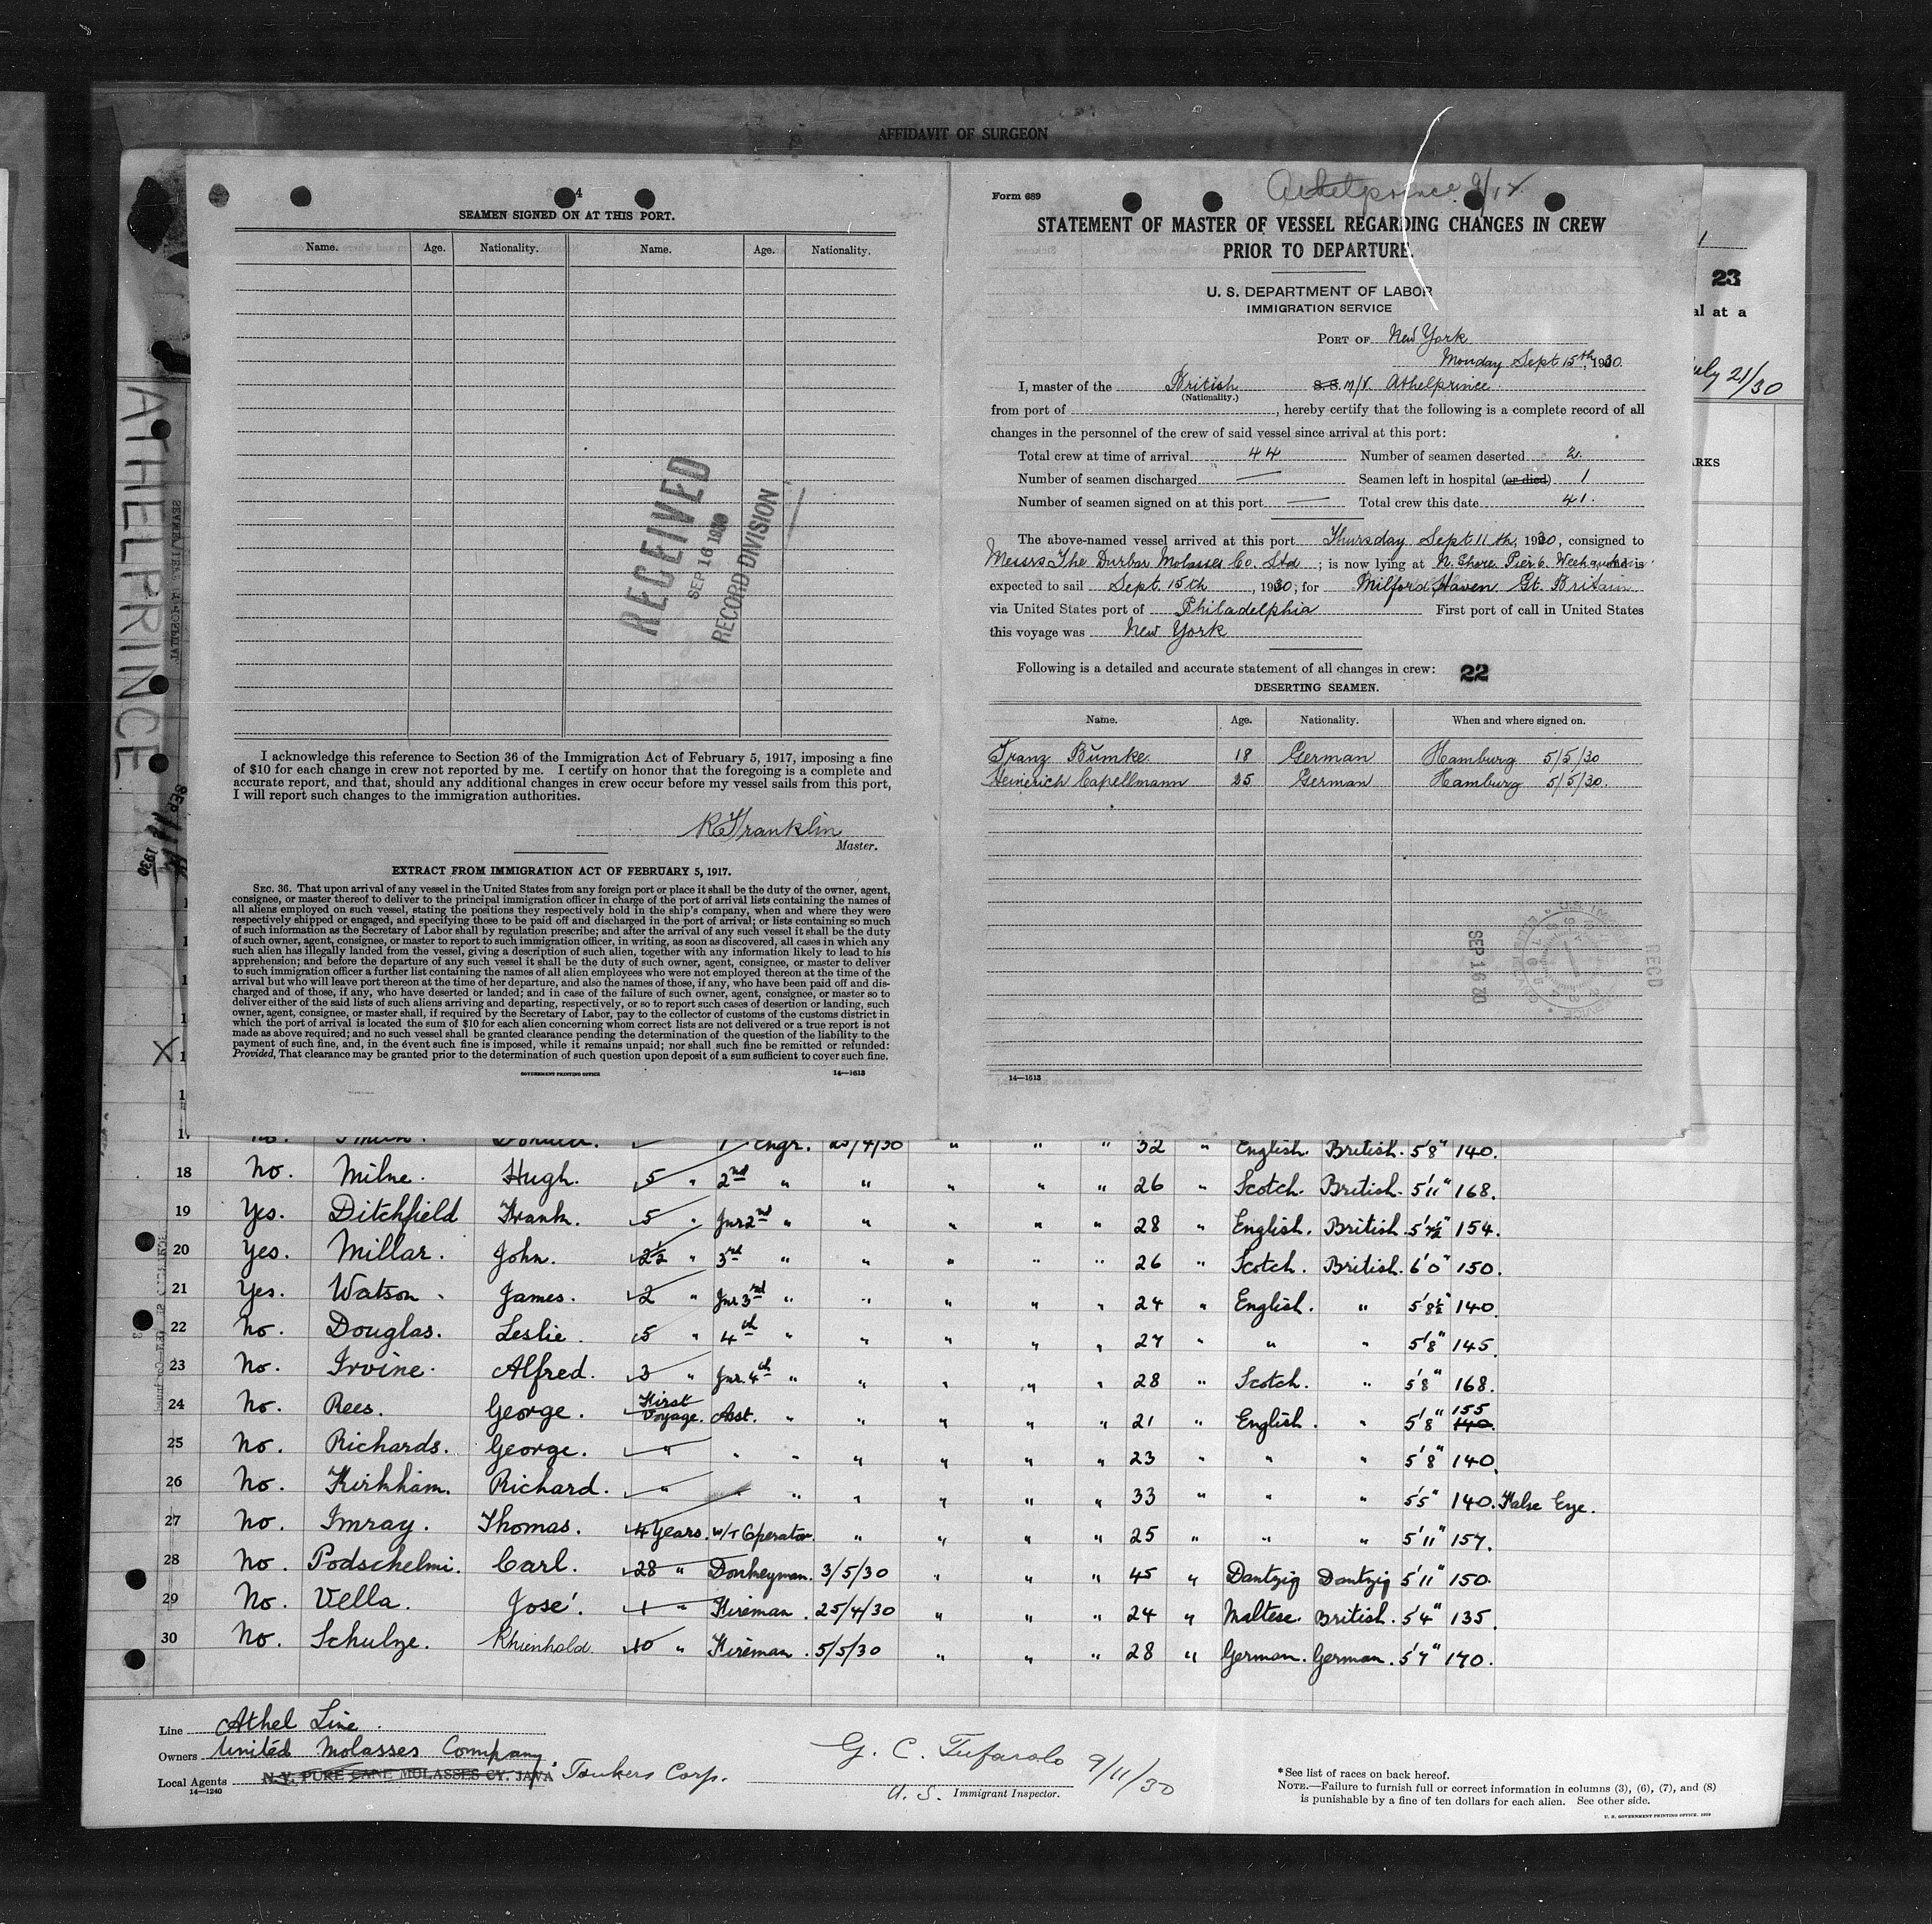 AFFIDAVIT OF SURGEON
4
SEAMEN SIGNED ON AT THIS PORT.
Name. Age. Nationality. Name. Age. Nationality.
RECEIVED
SEP 16 1930
RECORD DIVISION
I acknowledge this reference to Section 36 of the Immigration Act of February 5, 1917, imposing a fine
of $10 for each change in crew not reported by me. I certify on honor that the foregoing is a complete and
accurate report, and that, should any additional changes in crew occur before my vessel sails from this port,
I will report such changes to the immigration authorities.
R Franklin
Master.
EXTRACT FROM IMMIGRATION ACT OF FEBRUARY 5, 1917.
SEC. 36. That upon arrival of any vessel in the United States from any foreign port or place it shall be the duty of the owner, agent,
consignee, or master thereof to deliver to the principal immigration officer in charge of the port of arrival lists containing the names of
all aliens employed on such vessel, stating the positions they respectively hold in the ship's company, when and where they were
respectively shipped or engaged, and specifying those to be paid off and discharged in the port of arrival; or lists containing so much
of such information as the Secretary of Labor shall by regulation prescribe; and after the arrival of any such vessel it shall be the duty
of such owner, agent, consignee, or master to report to such immigration officer, in writing, as soon as discovered, all cases in which any
such alien has illegally landed from the vessel, giving a description of such alien, together with any information likely to lead to his
apprehension; and before the departure of any such vessel it shall be the duty of such owner, agent, consignee, or master to deliver
to such immigration officer a further list containing the names of all alien employees who were not employed thereon at the time of the
arrival but who will leave port thereon at the time of her departure, and also the names of those, if any, who have been paid off and dis-
charged and of those, if any, who have deserted or landed; and in case of the failure of such owner, agent, consignee, or master so to
deliver either of the said lists of such aliens arriving and departing, respectively, or so to report such cases of desertion or landing, such
owner, agent, consignee, or master shall, if required by the Secretary of Labor, pay to the collector of customs of the customs district in
which the port of arrival is located the sum of $10 for each alien concerning whom correct lists are not delivered or a true report is not
made as above required; and no such vessel shall be granted clearance pending the determination of the question of the liability to the
payment of such fine, and, in the event such fine is imposed, while it remains unpaid; nor shall such fine be remitted or refunded:
Provided, That clearance may be granted prior to the determination of such question upon deposit of a sum sufficient to cover such fine.
GOVERNMENT PRINTING OFFICE 14—1613
Athelprince 9/12
Form 689
STATEMENT OF MASTER OF VESSEL REGARDING CHANGES IN CREW
PRIOR TO DEPARTURE.
U. S. DEPARTMENT OF LABOR
IMMIGRATION SERVICE
PORT OF New York
Monday Sept 15th, 1930.
I, master of the British S.S. M/V. Athelprince.
(Nationality.)
from port of , hereby certify that the following is a complete record of all
changes in the personnel of the crew of said vessel since arrival at this port:
Total crew at time of arrival 44 Number of seamen deserted 2.
Number of seamen discharged — Seamen left in hospital (or died) 1
Number of seamen signed on at this port — Total crew this date 41.
The above-named vessel arrived at this port Thursday Sept 11th, 1930, consigned to
Messrs The Dunbar Molasses Co. Ltd ; is now lying at N. Shore Pier 6. Weehawken and is
expected to sail Sept 15th , 1930; for Milford Haven Gt. Britain
via United States port of Philadelphia First port of call in United States
this voyage was New York
Following is a detailed and accurate statement of all changes in crew: 22
DESERTING SEAMEN.
Name. Age. Nationality. When and where signed on.
Franz Bümke 18 German Hamburg 5/5/30
Heinerich Capellmann 25 German Hamburg 5/5/30.
SEP 16 30
RECD
14—1613
23
al at a
July 21/30
ARKS
ATHELPRINCE
SEP 11 1930
17 No. Smith. Donald. 1 Engr. 25/4/30 " " " 32 " English. British. 5'8" 140.
18 No. Milne. Hugh. 5 " 2nd " " " " " 26 " Scotch. British. 5'11" 168.
19 Yes. Ditchfield Frank. 5 " Jnr 2nd " " " " " 28 " English. British. 5'7½" 154.
20 Yes. Millar. John. 2½ " 3rd " " " " " 26 " Scotch. British. 6'0" 150.
21 Yes. Watson. James. 2 " Jnr 3rd " " " " " 24 " English. " 5'8½" 140.
22 No. Douglas. Leslie. 5 " 4th " " " " " 27 " " " 5'8" 145.
23 No. Irvine. Alfred. 3 " Jnr. 4th " " " " " 28 " Scotch. " 5'8" 168.
24 No. Rees. George. First Voyage. Asst. " " " " " 21 " English. " 5'8" 155 140.
25 No. Richards. George. " " " " " " " 23 " " " 5'8" 140.
26 No. Kirkham. Richard. " " " " " " " 33 " " " 5'5" 140. False Eye.
27 No. Imray. Thomas. 4 Years. W/T Operator. " " " " 25 " " " 5'11" 157.
28 No. Podschelmi. Carl. 28 " Donkeyman. 3/5/30 " " " 45 " Dantzig Dantzig 5'11" 150.
29 No. Vella. José. 1 " Fireman. 25/4/30 " " " 24 " Maltese. British. 5'4" 135.
30 No. Schulze. Rhienhold. 10 " Fireman. 5/5/30 " " " 28 " German. German. 5'7" 170.
Line Athel Line.
Owners United Molasses Company.
Local Agents N.Y. PURE CANE MOLASSES CY. JAVA Tankers Corp.
14—1240
G. C. Tufarolo 9/11/30
U. S. Immigrant Inspector.
*See list of races on back hereof.
NOTE.—Failure to furnish full or correct information in columns (3), (6), (7), and (8)
is punishable by a fine of ten dollars for each alien. See other side.
U. S. GOVERNMENT PRINTING OFFICE. 1929